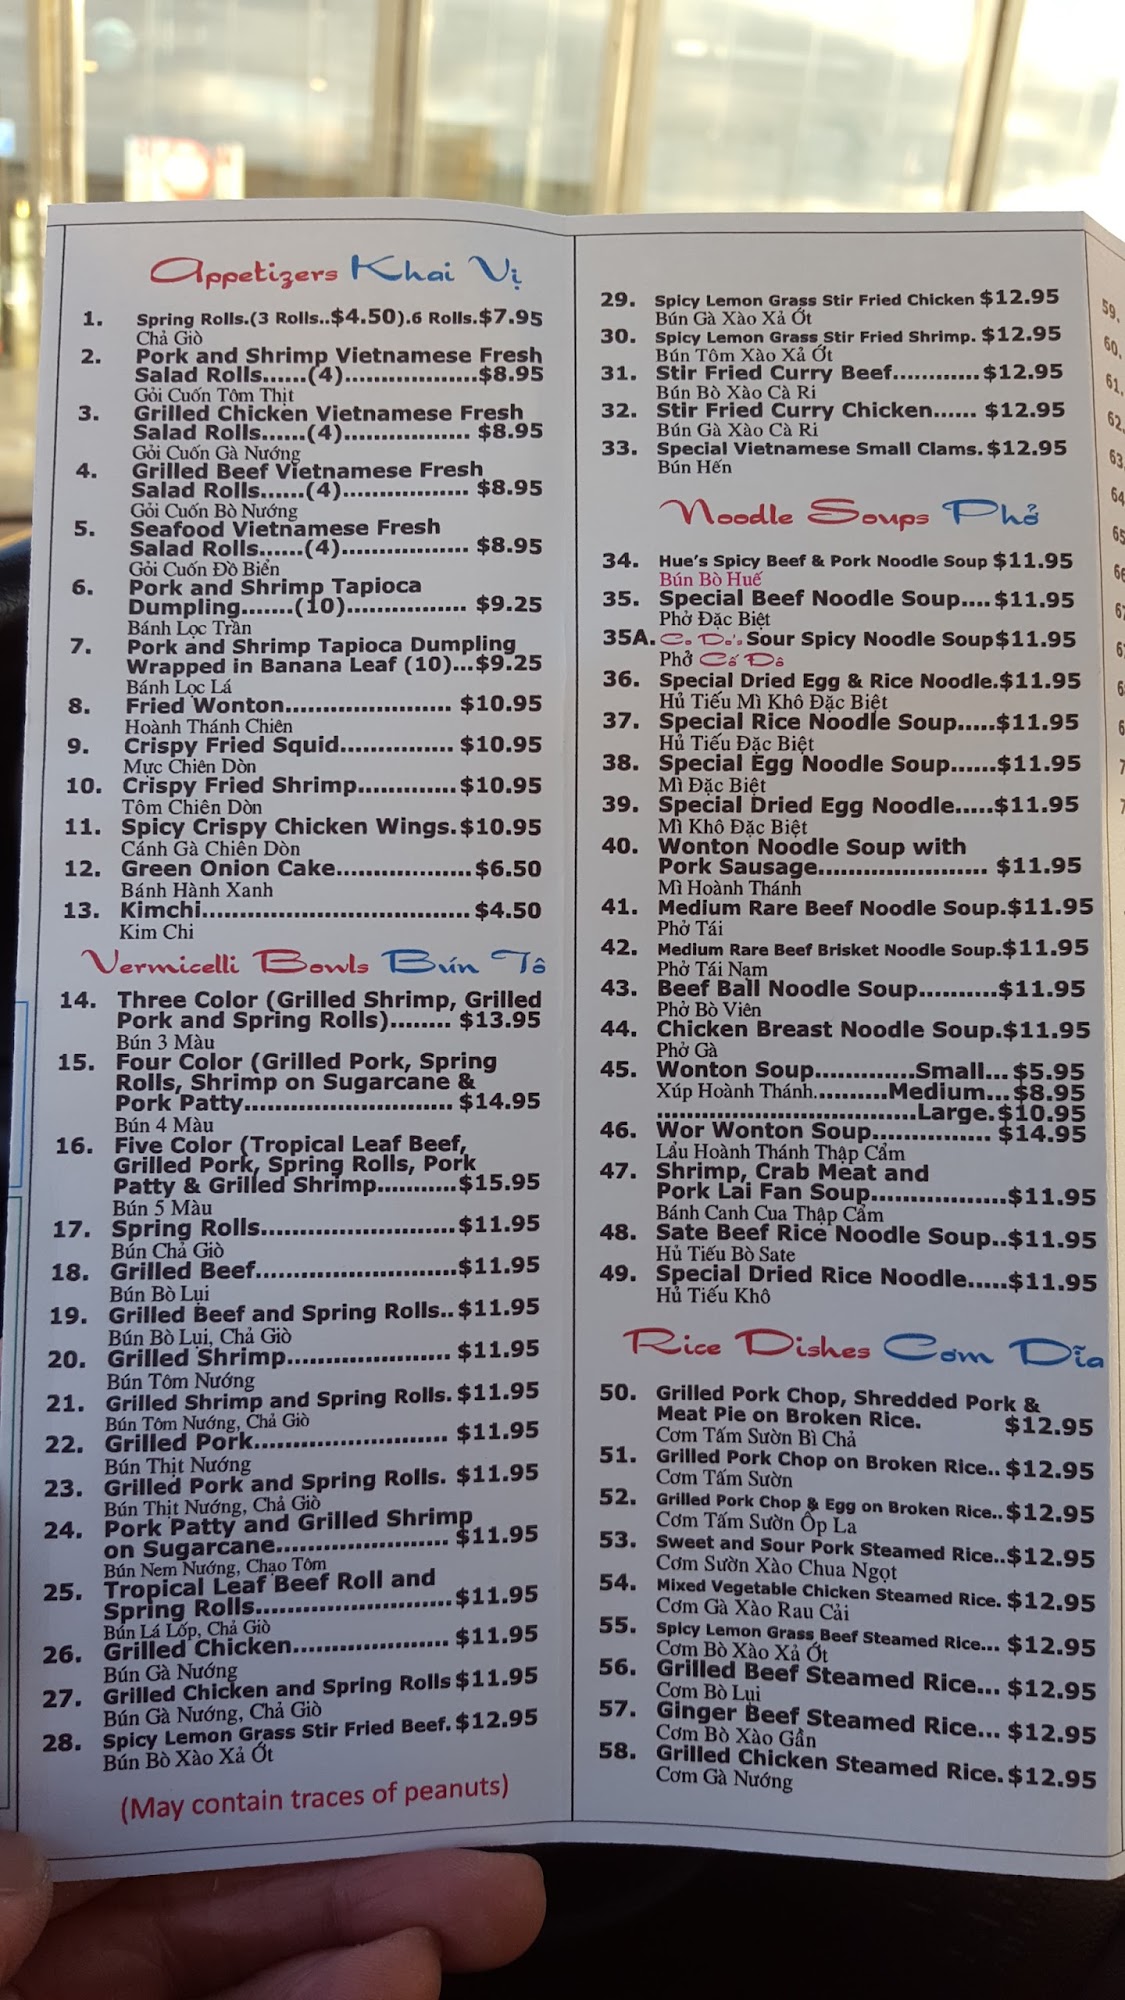 Appetizers Khai Vị
1. Spring Rolls.(3 Rolls..$4.50).6 Rolls.$7.95
Chả Giò
2. Pork and Shrimp Vietnamese Fresh
Salad Rolls......(4)..................$8.95
Gỏi Cuốn Tôm Thịt
3. Grilled Chicken Vietnamese Fresh
Salad Rolls......(4)................. $8.95
Gỏi Cuốn Gà Nướng
4. Grilled Beef Vietnamese Fresh
Salad Rolls......(4)................. $8.95
Gỏi Cuốn Bò Nướng
5. Seafood Vietnamese Fresh
Salad Rolls......(4)................. $8.95
Gỏi Cuốn Đồ Biển
6. Pork and Shrimp Tapioca
Dumpling.......(10)................ $9.25
Bánh Lọc Trần
7. Pork and Shrimp Tapioca Dumpling
Wrapped in Banana Leaf (10)...$9.25
Bánh Lọc Lá
8. Fried Wonton...................... $10.95
Hoành Thánh Chiên
9. Crispy Fried Squid............... $10.95
Mực Chiên Dòn
10. Crispy Fried Shrimp.............$10.95
Tôm Chiên Dòn
11. Spicy Crispy Chicken Wings.$10.95
Cánh Gà Chiên Dòn
12. Green Onion Cake..................$6.50
Bánh Hành Xanh
13. Kimchi...................................$4.50
Kim Chi
Vermicelli Bowls Bún Tô
14. Three Color (Grilled Shrimp, Grilled
Pork and Spring Rolls)........ $13.95
Bún 3 Màu
15. Four Color (Grilled Pork, Spring
Rolls, Shrimp on Sugarcane &
Pork Patty............................ $14.95
Bún 4 Màu
16. Five Color (Tropical Leaf Beef,
Grilled Pork, Spring Rolls, Pork
Patty & Grilled Shrimp...........$15.95
Bún 5 Màu
17. Spring Rolls..........................$11.95
Bún Chả Giò
18. Grilled Beef...........................$11.95
Bún Bò Lụi
19. Grilled Beef and Spring Rolls..$11.95
Bún Bò Lụi, Chả Giò
20. Grilled Shrimp...................... $11.95
Bún Tôm Nướng
21. Grilled Shrimp and Spring Rolls. $11.95
Bún Tôm Nướng, Chả Giò
22. Grilled Pork.......................... $11.95
Bún Thịt Nướng
23. Grilled Pork and Spring Rolls. $11.95
Bún Thịt Nướng, Chả Giò
24. Pork Patty and Grilled Shrimp
on Sugarcane....................... $11.95
Bún Nem Nướng, Chạo Tôm
25. Tropical Leaf Beef Roll and
Spring Rolls..........................$11.95
Bún Lá Lốp, Chả Giò
26. Grilled Chicken..................... $11.95
Bún Gà Nướng
27. Grilled Chicken and Spring Rolls $11.95
Bún Gà Nướng, Chả Giò
28. Spicy Lemon Grass Stir Fried Beef. $12.95
Bún Bò Xào Xả Ớt
(May contain traces of peanuts)
29. Spicy Lemon Grass Stir Fried Chicken $12.95
Bún Gà Xào Xả Ớt
30. Spicy Lemon Grass Stir Fried Shrimp. $12.95
Bún Tôm Xào Xả Ớt
31. Stir Fried Curry Beef............$12.95
Bún Bò Xào Cà Ri
32. Stir Fried Curry Chicken...... $12.95
Bún Gà Xào Cà Ri
33. Special Vietnamese Small Clams. $12.95
Bún Hến
Noodle Soups Phở
34. Hue's Spicy Beef & Pork Noodle Soup $11.95
Bún Bò Huế
35. Special Beef Noodle Soup....$11.95
Phở Đặc Biệt
35A. Co Do's Sour Spicy Noodle Soup$11.95
Phở Cố Đô
36. Special Dried Egg & Rice Noodle.$11.95
Hủ Tiếu Mì Khô Đặc Biệt
37. Special Rice Noodle Soup.....$11.95
Hủ Tiếu Đặc Biệt
38. Special Egg Noodle Soup......$11.95
Mì Đặc Biệt
39. Special Dried Egg Noodle.....$11.95
Mì Khô Đặc Biệt
40. Wonton Noodle Soup with
Pork Sausage...................... $11.95
Mì Hoành Thánh
41. Medium Rare Beef Noodle Soup.$11.95
Phở Tái
42. Medium Rare Beef Brisket Noodle Soup.$11.95
Phở Tái Nạm
43. Beef Ball Noodle Soup..........$11.95
Phở Bò Viên
44. Chicken Breast Noodle Soup.$11.95
Phở Gà
45. Wonton Soup.............Small... $5.95
Xúp Hoành Thánh..........Medium...$8.95
..................................Large.$10.95
46. Wor Wonton Soup................ $14.95
Lẩu Hoành Thánh Thập Cẩm
47. Shrimp, Crab Meat and
Pork Lai Fan Soup..................$11.95
Bánh Canh Cua Thập Cẩm
48. Sate Beef Rice Noodle Soup..$11.95
Hủ Tiếu Bò Sate
49. Special Dried Rice Noodle.....$11.95
Hủ Tiếu Khô
Rice Dishes Cơm Dĩa
50. Grilled Pork Chop, Shredded Pork &
Meat Pie on Broken Rice. $12.95
Cơm Tấm Sườn Bì Chả
51. Grilled Pork Chop on Broken Rice.. $12.95
Cơm Tấm Sườn
52. Grilled Pork Chop & Egg on Broken Rice.. $12.95
Cơm Tấm Sườn Ốp La
53. Sweet and Sour Pork Steamed Rice..$12.95
Cơm Sườn Xào Chua Ngọt
54. Mixed Vegetable Chicken Steamed Rice. $12.95
Cơm Gà Xào Rau Cải
55. Spicy Lemon Grass Beef Steamed Rice... $12.95
Cơm Bò Xào Xả Ớt
56. Grilled Beef Steamed Rice... $12.95
Cơm Bò Lụi
57. Ginger Beef Steamed Rice... $12.95
Cơm Bò Xào Gần
58. Grilled Chicken Steamed Rice. $12.95
Cơm Gà Nướng
59.
60.
61.
62.
63.
64
65